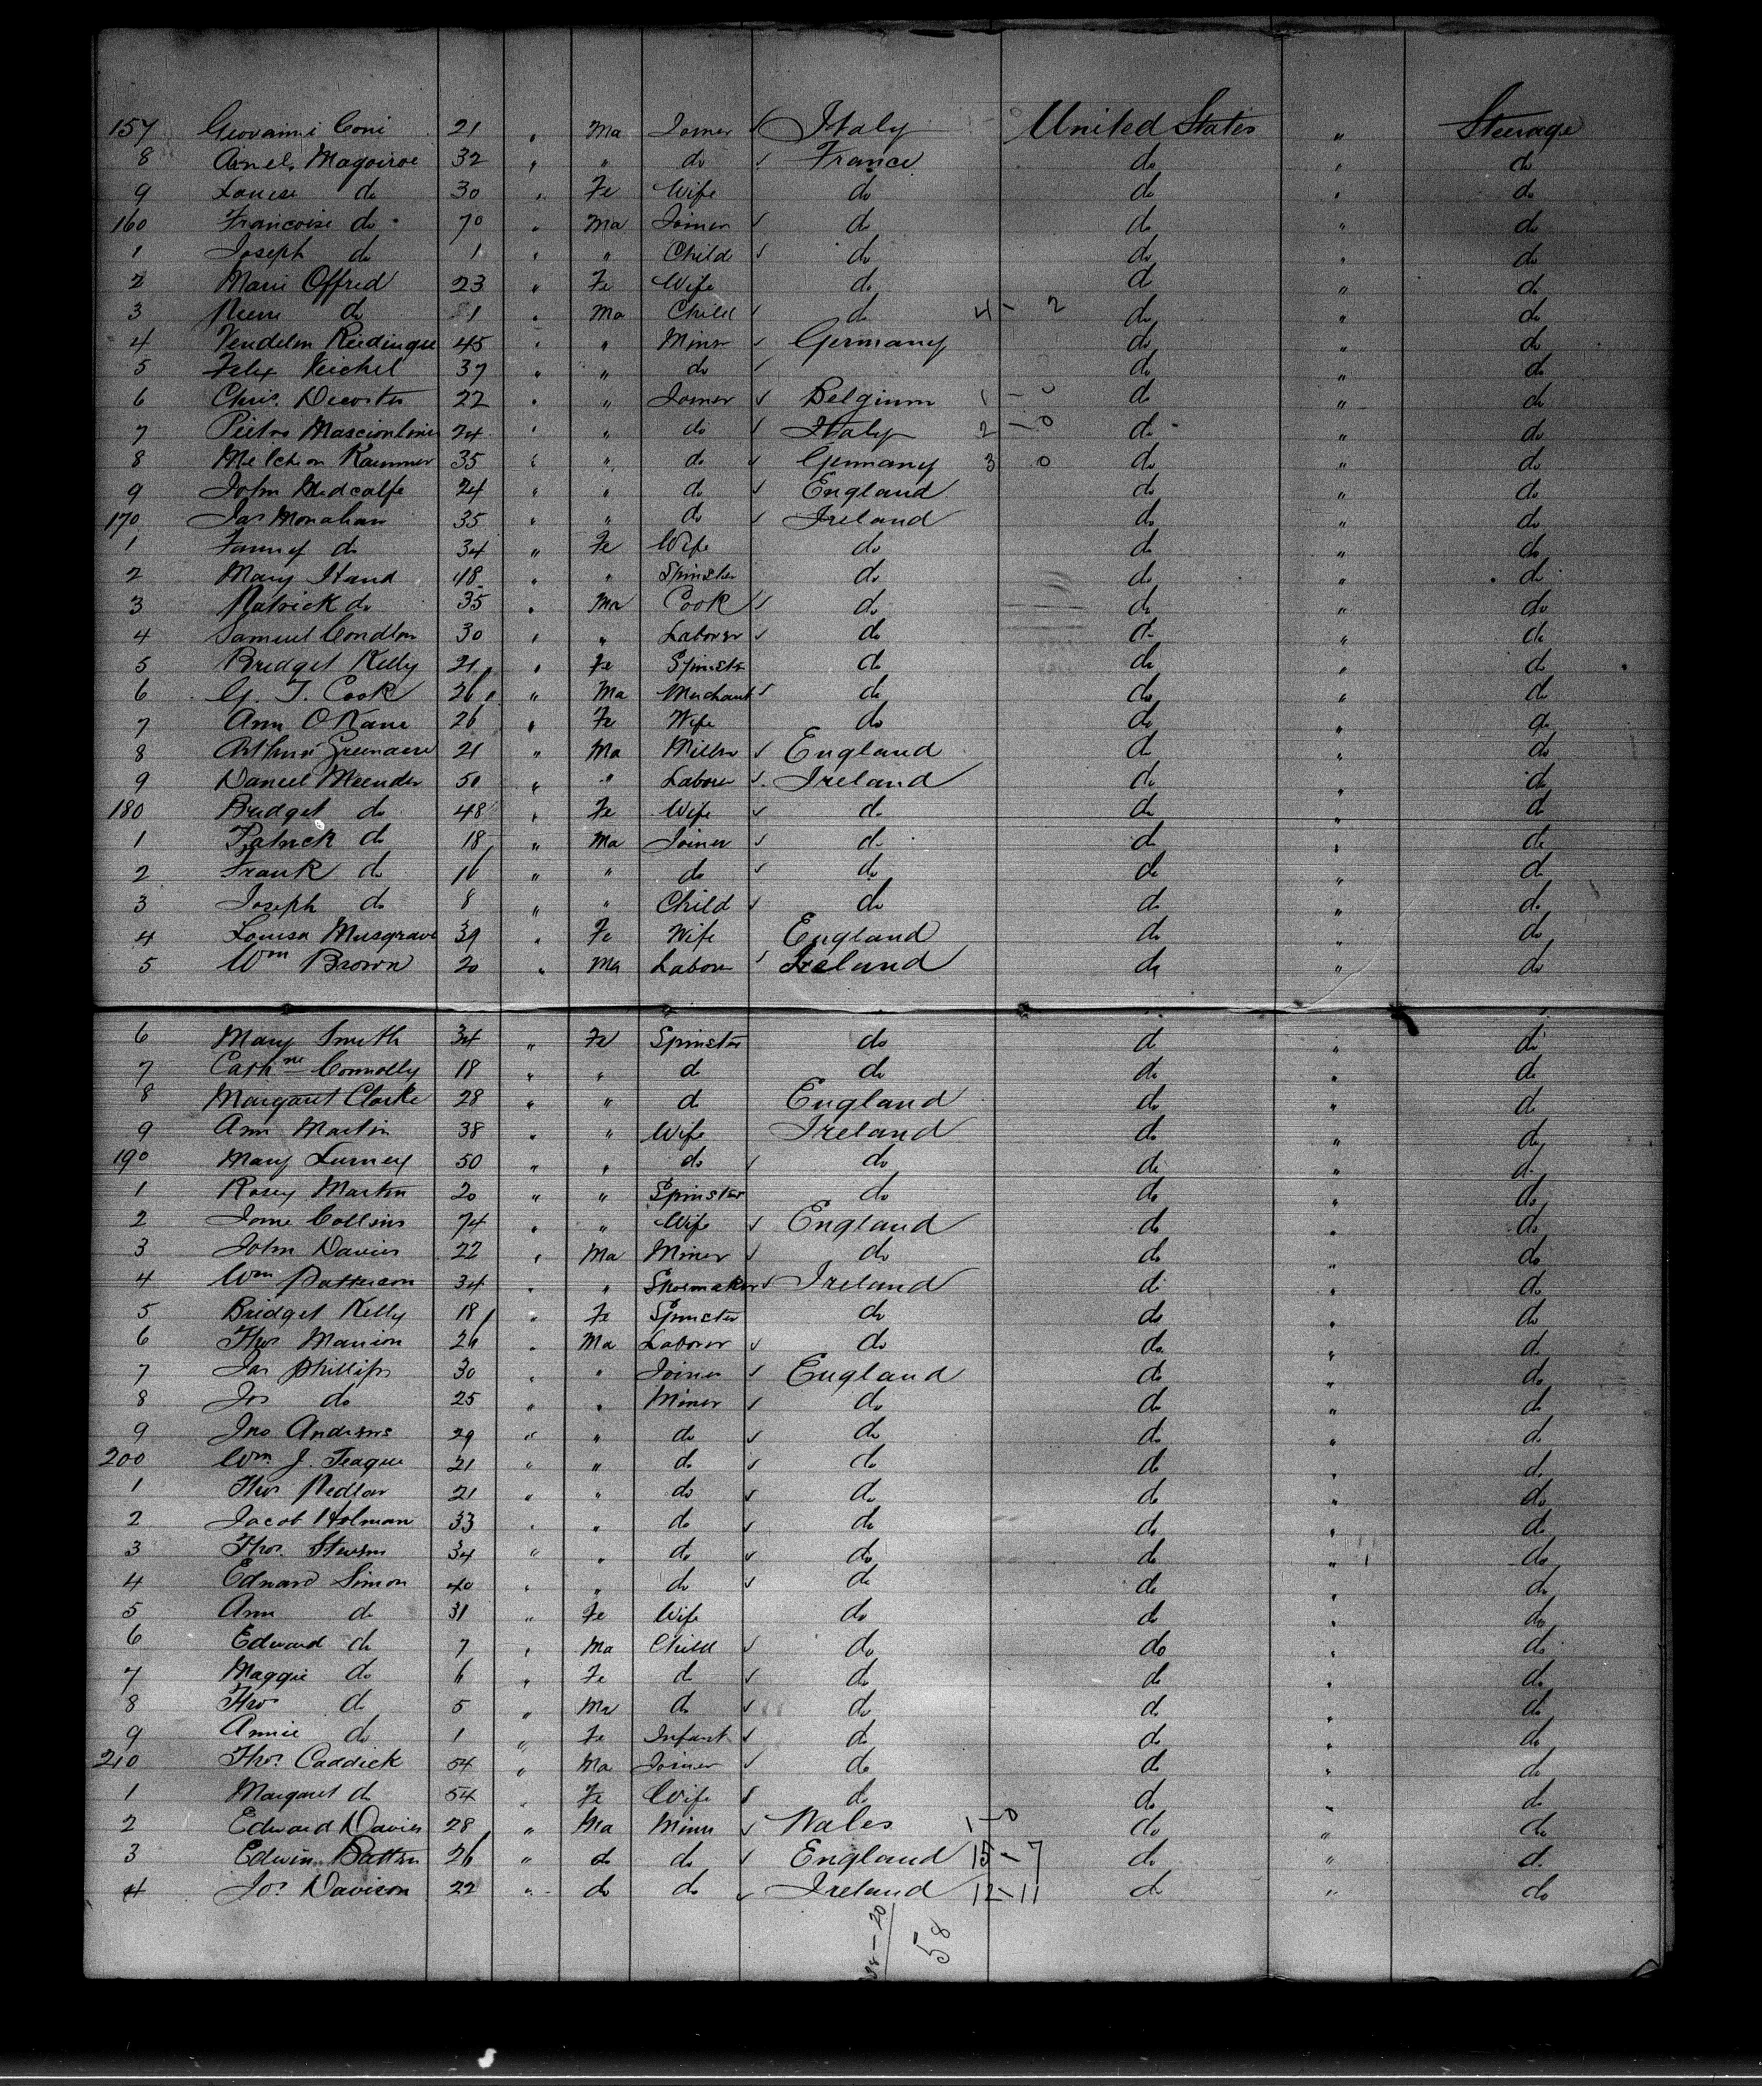 157 Giovanni Coni 21 " Ma Joiner ✓ Italy United States " Steerage
8 Magoiroe 32 " " do ✓ France do " do
9 Louise do 30 " Fe Wife do do " do
160 Francoise do 70 " Ma Joiner ✓ do do " do
1 Joseph do 1 " " Child ✓ do do " do
2 Marie Offred 23 " Fe Wife do do " do
3 Pierre do 1 " Ma Child ✓ do 4 - 2 do " do
4 Vendelin 45 " " Miner ✓ Germany do " do
5 Felix Reichel 37 " " do ✓ do " do
6 Chris. Decoster 22 " " Joiner ✓ Belgium 1 - 0 do " do
7 Pietro 24 " " do ✓ Italy 2 - 0 do " do
8 Melchior Kaemmer 35 " " do ✓ Germany 3 0 do " do
9 John Medcalfe 24 " " do ✓ England do " do
170 Jas Monahan 35 " " do ✓ Ireland do " do
1 Fanny do 34 " Fe Wife do do " do
2 Mary Hand 18 " " Spinster do do " do
3 Patrick do 35 " Ma Cook ✓ do do " do
4 Samuel Condlon 30 " " Laborer ✓ do do " do
5 Bridget Kelly 21 " Fe Spinstr do do " do
6 G. T. Cook 26 " Ma Merchant ✓ do do " do
7 Ann O Kane 26 " Fe Wife do do " do
8 Arthur Greenacre 21 " Ma Miller ✓ England do " do
9 Daniel 50 " " Labore ✓ Ireland do " do
180 Bridget do 48 " Fe Wife ✓ do do " do
1 Patrick do 18 " Ma Joiner ✓ do do " do
2 Frank do 16 " " do ✓ do do " do
3 Joseph do 8 " " Child ✓ do do " do
4 Louisa Musgrave 39 " Fe Wife England do " do
5 Wm Brown 20 " Ma Labore ✓ Ireland do " do
6 Mary Smith 34 " Fe Spinster do do " do
7 Cathne Connolly 18 " " do do do " do
8 Margaret Clarke 28 " " do England do " do
9 Ann Martin 38 " " Wife Ireland do " do
190 Mary Lurney 50 " " do ✓ do do " do
1 Rosey Martin 20 " " Spinster do do " do
2 Jane Collins 74 " " Wife ✓ England do " do
3 John Davies 22 " Ma Miner ✓ do do " do
4 Wm Patterson 34 " " Shoemaker ✓ Ireland do " do
5 Bridget Kelly 18 " Fe Spinster do do " do
6 Thos Manion 26 " Ma Laborer ✓ do do " do
7 Jas Phillips 30 " " Joiner ✓ England do " do
8 Jos do 25 " " Miner ✓ do do " do
9 Jno Andrews 29 " " do ✓ do do " do
200 Wm. J. Teague 21 " " do ✓ do do " do
1 Thos Pedlar 21 " " do ✓ do do " do
2 Jacob Holman 33 " " do ✓ do do " do
3 Thos. Stevens 34 " " do ✓ do do " do
4 Edward Simon 40 " " do ✓ do do " do
5 Ann do 31 " Fe Wife do do " do
6 Edward do 7 " Ma Child ✓ do do " do
7 Maggie do 6 " Fe do ✓ do do " do
8 Thos do 5 " Ma do ✓ do do " do
9 Annie do 1 " Fe Infant ✓ do do " do
210 Thos. Caddick 54 " Ma Joiner ✓ do do " do
1 Margaret do 54 " Fe Wife ✓ do do " do
2 Edward Davies 28 " Ma Miner ✓ Wales 1 - 0 do " do
3 Edwin Batten 26 " do do ✓ England 15 - 7 do " do
4 Jos. Davison 22 " do do ✓ Ireland 12 - 11 do " do
38 - 20
58